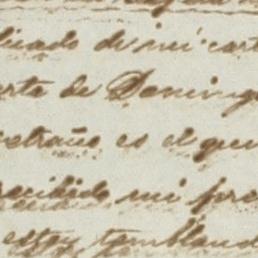 licado de mi cart
rta de Doming
estraño es el que
recibido mi pre
estoy tembland